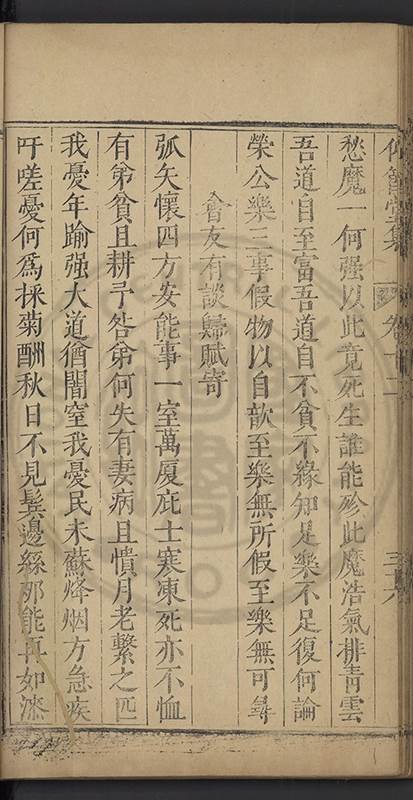 堂集 卷十二 三六
愁魔一何强以此竟死生誰能殄此魔浩氣排青雲
吾道自至富吾道自不貧不緣知足樂不足復何論
榮公樂三事假物以自歆至樂無所假至樂無可尋
會友有談歸賦寄
弧矢懷四方安能事一室萬厦庇士寒凍死亦不恤
有弟貧且耕予咎弟何失有妻病且憒月老繫之匹
我憂年踰强大道猶闇窒我憂民未蘇烽烟方急疾
吁嗟憂何爲採菊酬秋日不見鬂邊絲那能再如漆